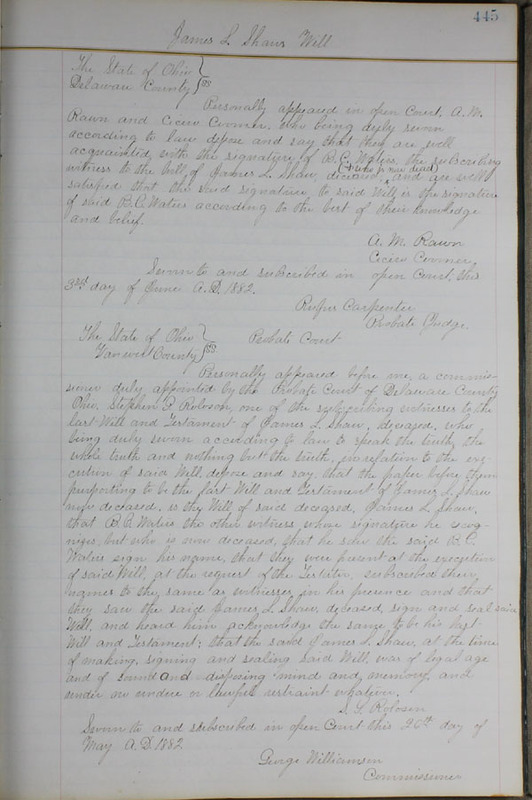 445
James L. Shaws Will
The State of Ohio }
Delaware County } SS
Personally appeared in open Court, A. M.
Rawn and Cicero Coomer, who being duly sworn
according to law depose and say that they are well
acquainted with the signature of B. C. Waties, the subscribing
(& who is now dead)
witness to the will of James L. Shaw, deceased, and are well
satisfied that the said signature to said Will is the signature
of said B. C. Waties according to the best of their knowledge
and belief.
A. M. Rawn
Cicero Coomer
Sworn to and subscribed in open Court, this
3rd day of June A.D. 1882.
Rufus Carpenter
Probate Judge.
The State of Ohio } Probate Court
Vanwert County } SS
Personally appeared before me, a commis-
sioner duly appointed by the Probate Court of Delaware County
Ohio, Stephen S. Roloson, one of the subscribing witnesses to the
last Will and Testament of James L. Shaw, deceased, who
being duly sworn according to law to speak the truth, the
whole truth and nothing but the truth, in relation to the exe-
cution of said Will, depose and say, that the paper before them
purporting to be the last Will and Testament of James L. Shaw
now deceased, is the Will of said deceased, James L. Shaw,
that B. C. Waties the other witness whose signature he recog-
nizes, but who is now deceased, that he saw the said B. C.
Waties sign his name, that they were present at the execution
of said Will, at the request of the Testator, subscribed their
names to the same as witnesses in his presence and that
they saw the said James L. Shaw, deceased, sign and seal said
Will, and heard him acknowledge the same to be his last
Will and Testament; that the said James L. Shaw, at the time
of making, signing and sealing said Will, was of legal age
and of sound and disposing mind and memory, and
under no undue or lawful restraint whatever.
S. S. Roloson
Sworn to and subscribed in open Court this 26th day of
May A.D. 1882
George Williamson
Commissioner